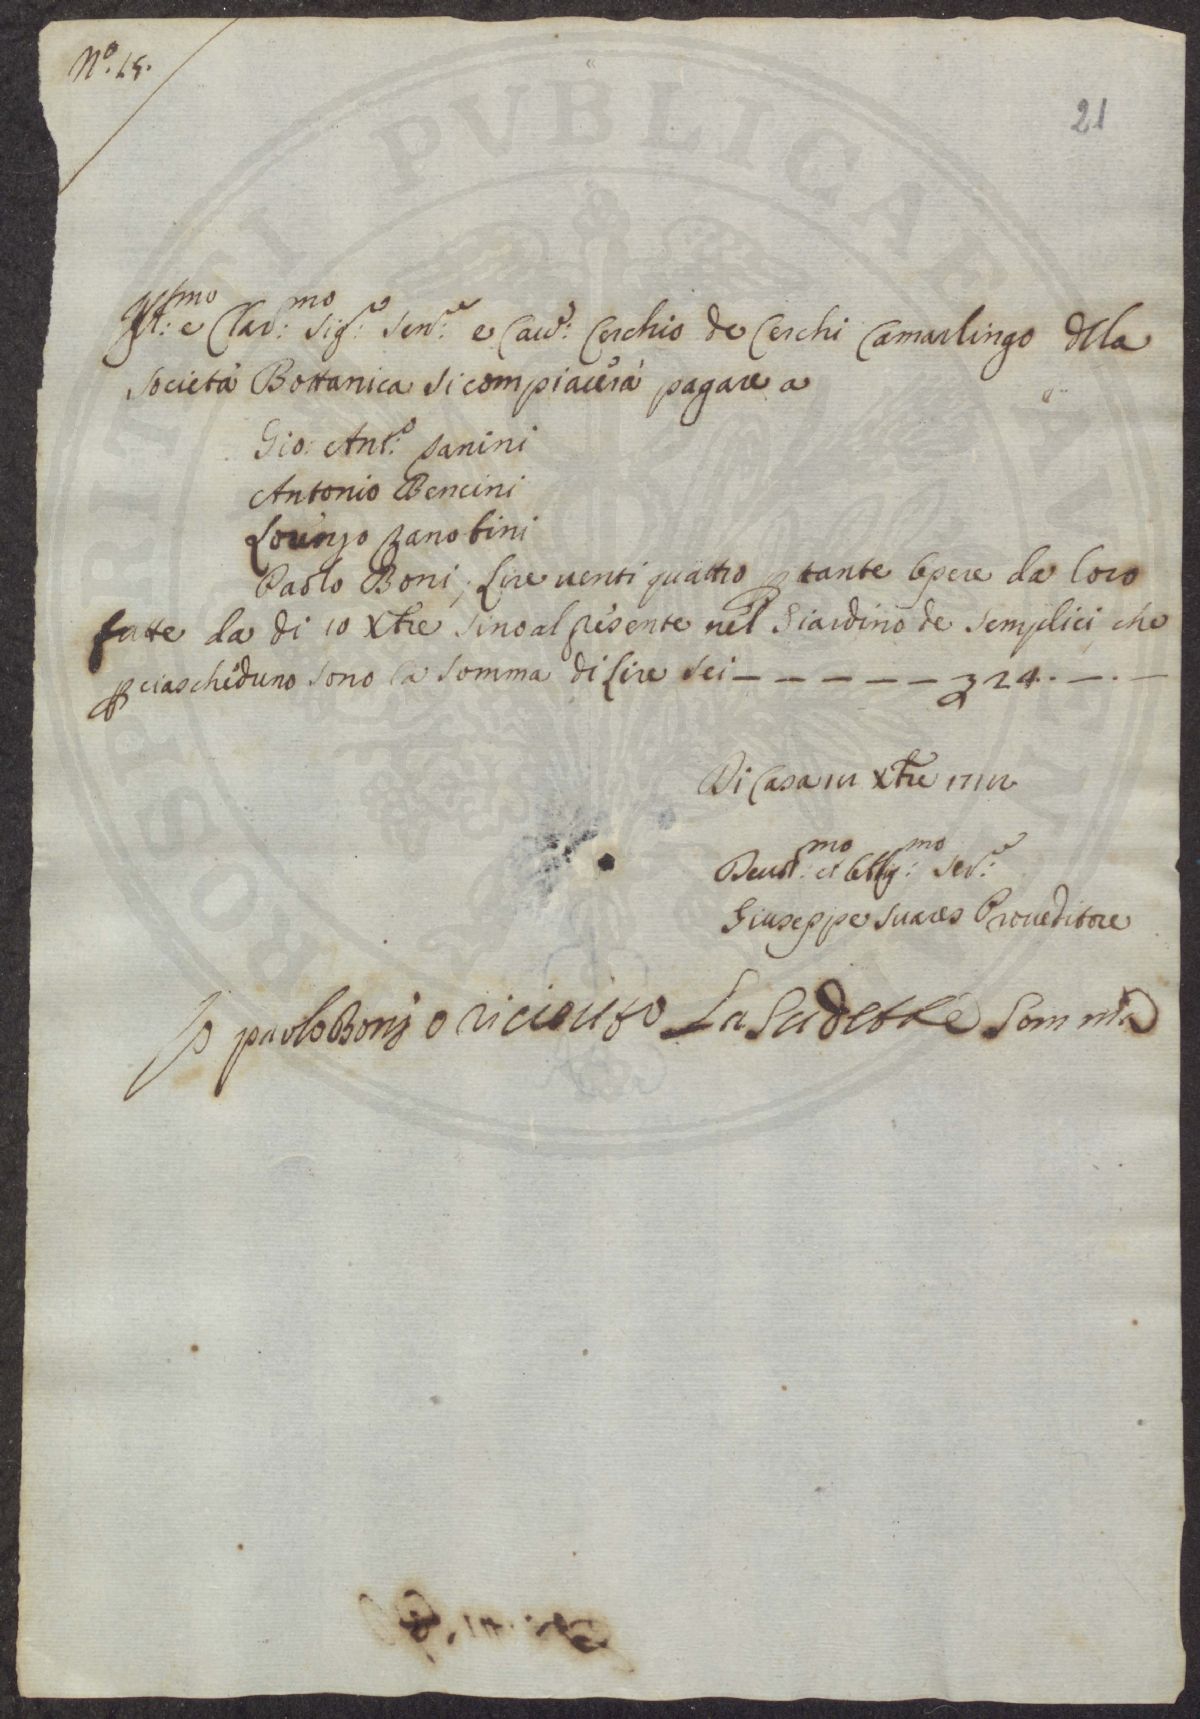 N.º 15.
21
Ill:mo e Clar:mo Sig:e Sen:e e Cav: Cerchio de Cerchi Camarlingo della
Società Bottanica si compiacerà pagare a
Gio: Ant:o Panini
Antonio Bencini
Lorenzo Zanobini
Paolo Boni; Lire venti quattro p tante opere da loro
fatte da di 10 Xbre sino al presente nel Giardino de Semplici, che
p ciascheduno sono la somma di Lire sei — — — — — — 24. — . —
Di Casa Xbre
Deuot:mo et Oblig:mo Ser:e
Giuseppe Suares Proueditore
Io paolo Bonj o riceuto La sudette Somma
PUBLICAE